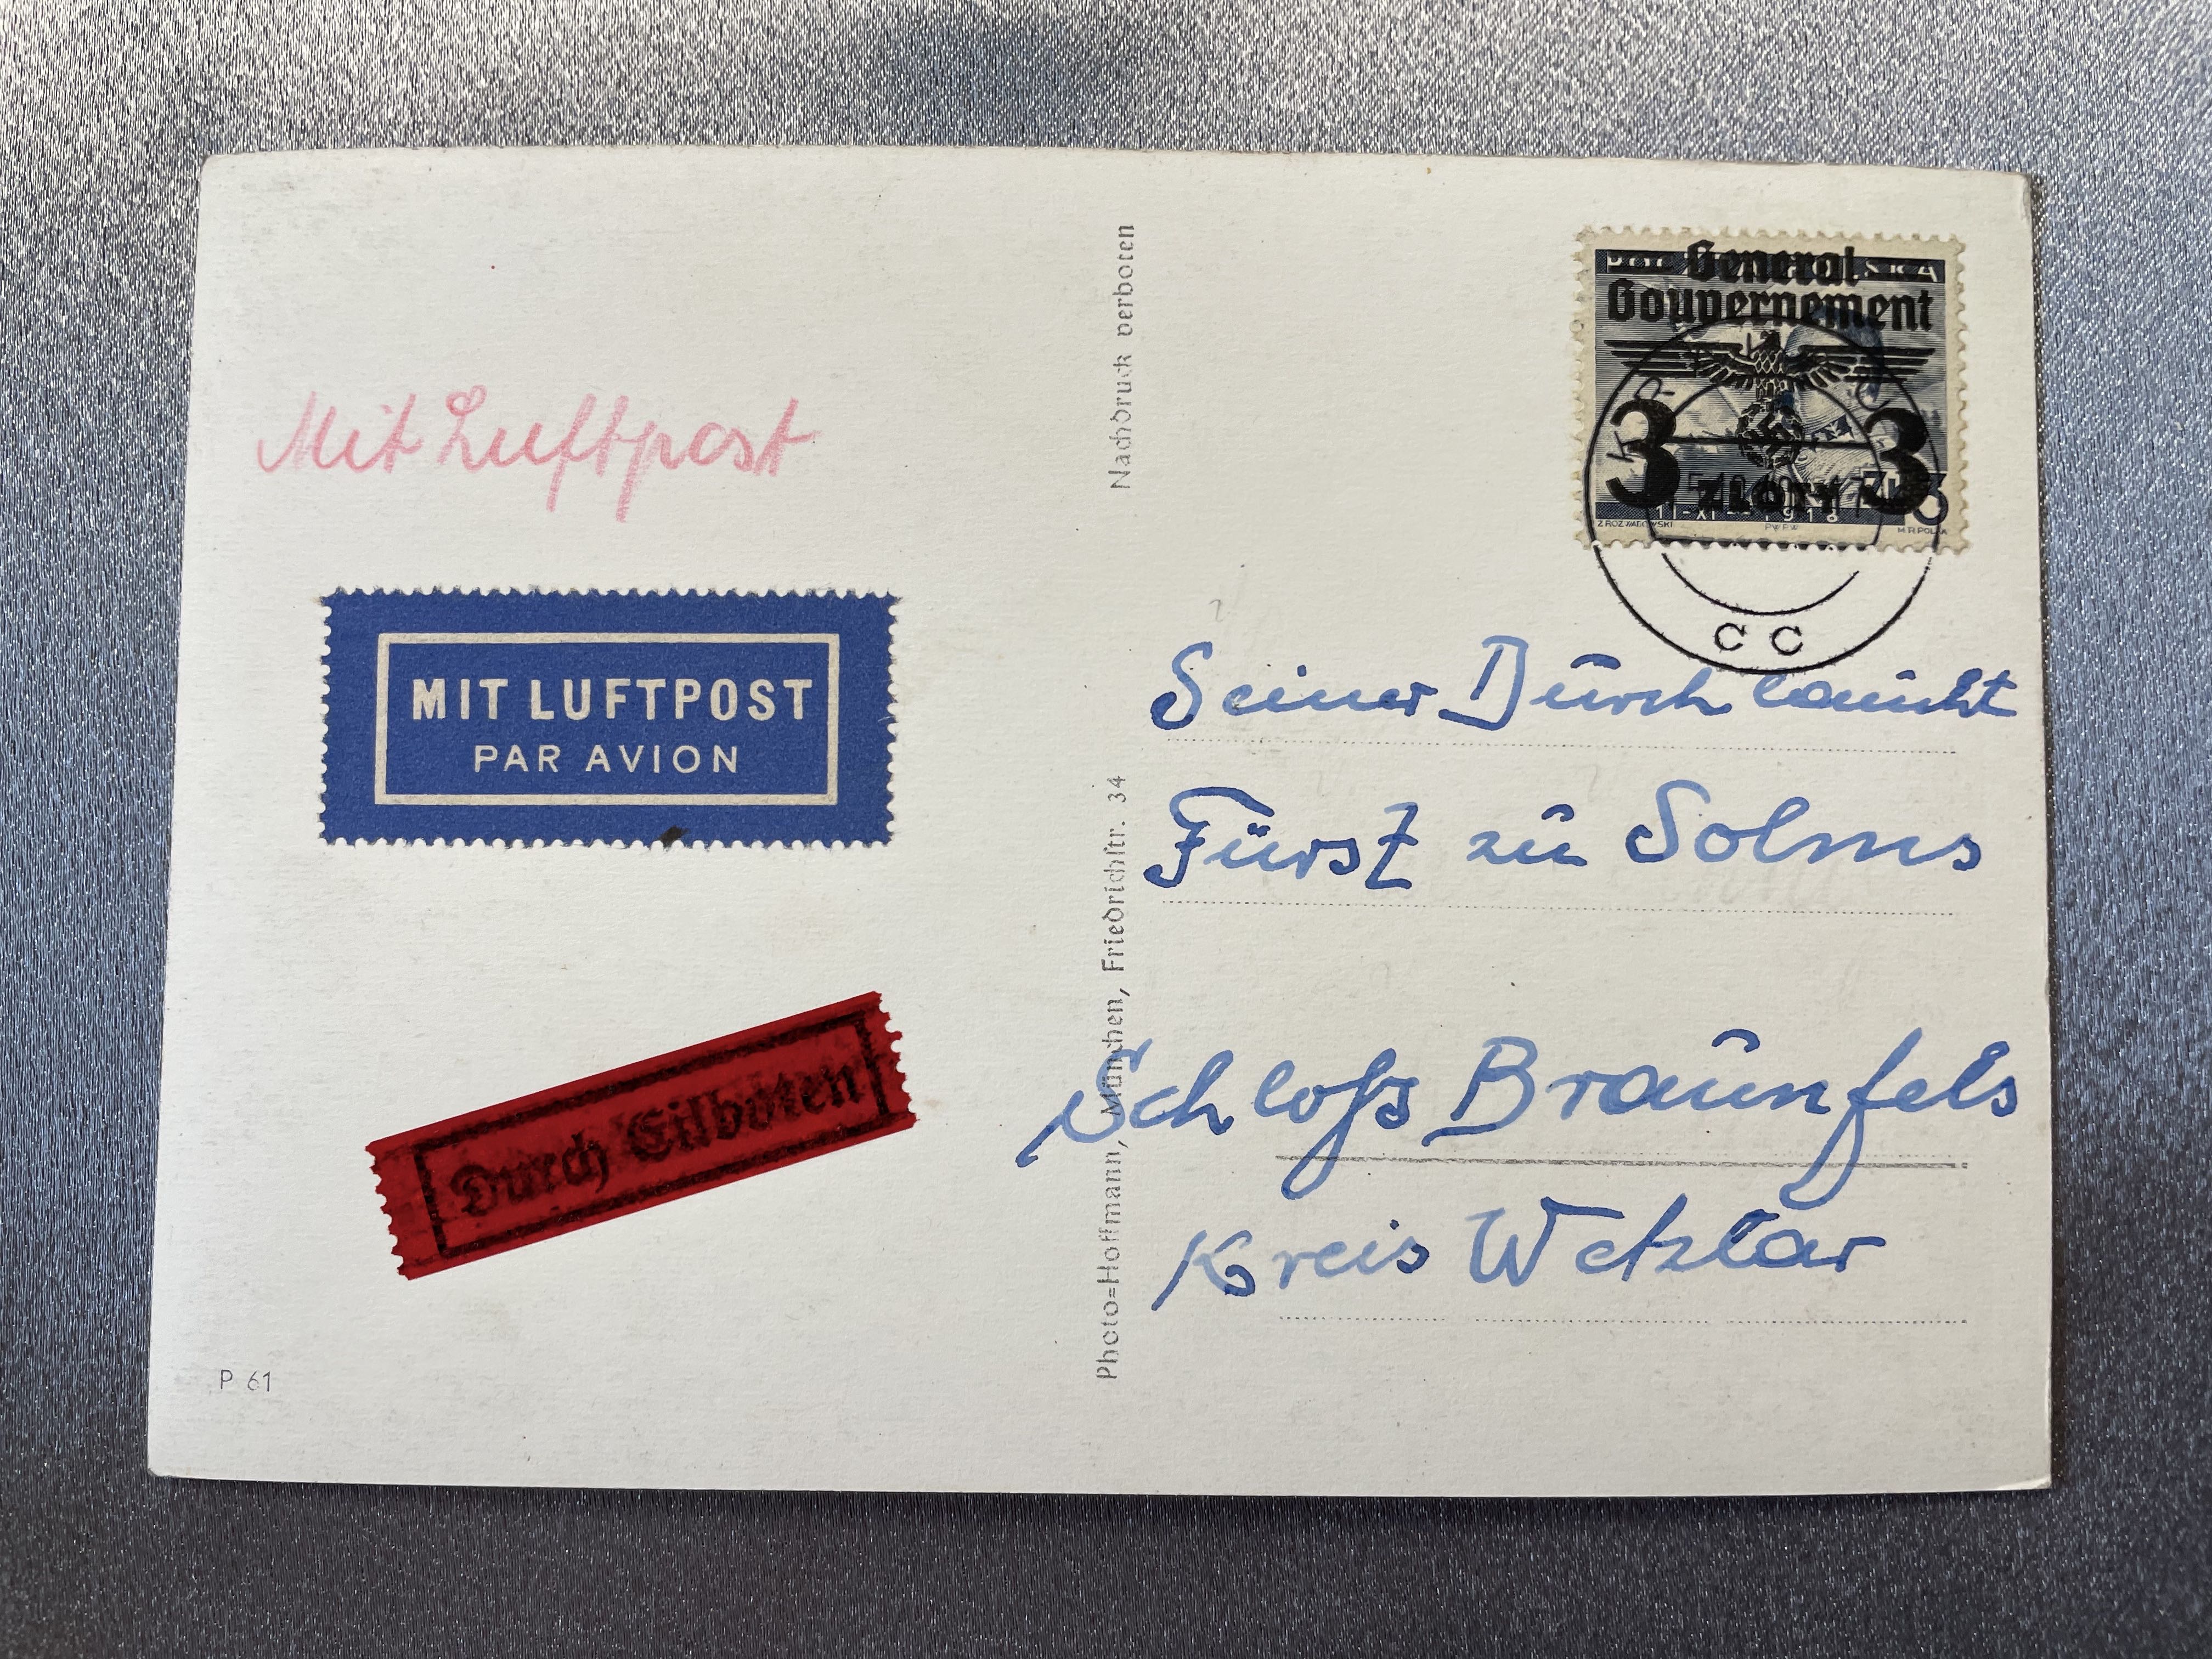 Mit Luftpost
MIT LUFTPOST
PAR AVION
Durch Eilboten
P 61
Nachdruck verboten
Photo=Hoffmann, München, Friedrichstr. 34
General
Gouvernement
3 3
ZŁOTY
11-XI-1918
Z.ROZWADOWSKI
PWPW
M.R.POLAK
CC
Seiner Durchlaucht
Fürst zu Solms
Schloß Braunfels
Kreis Wetzlar